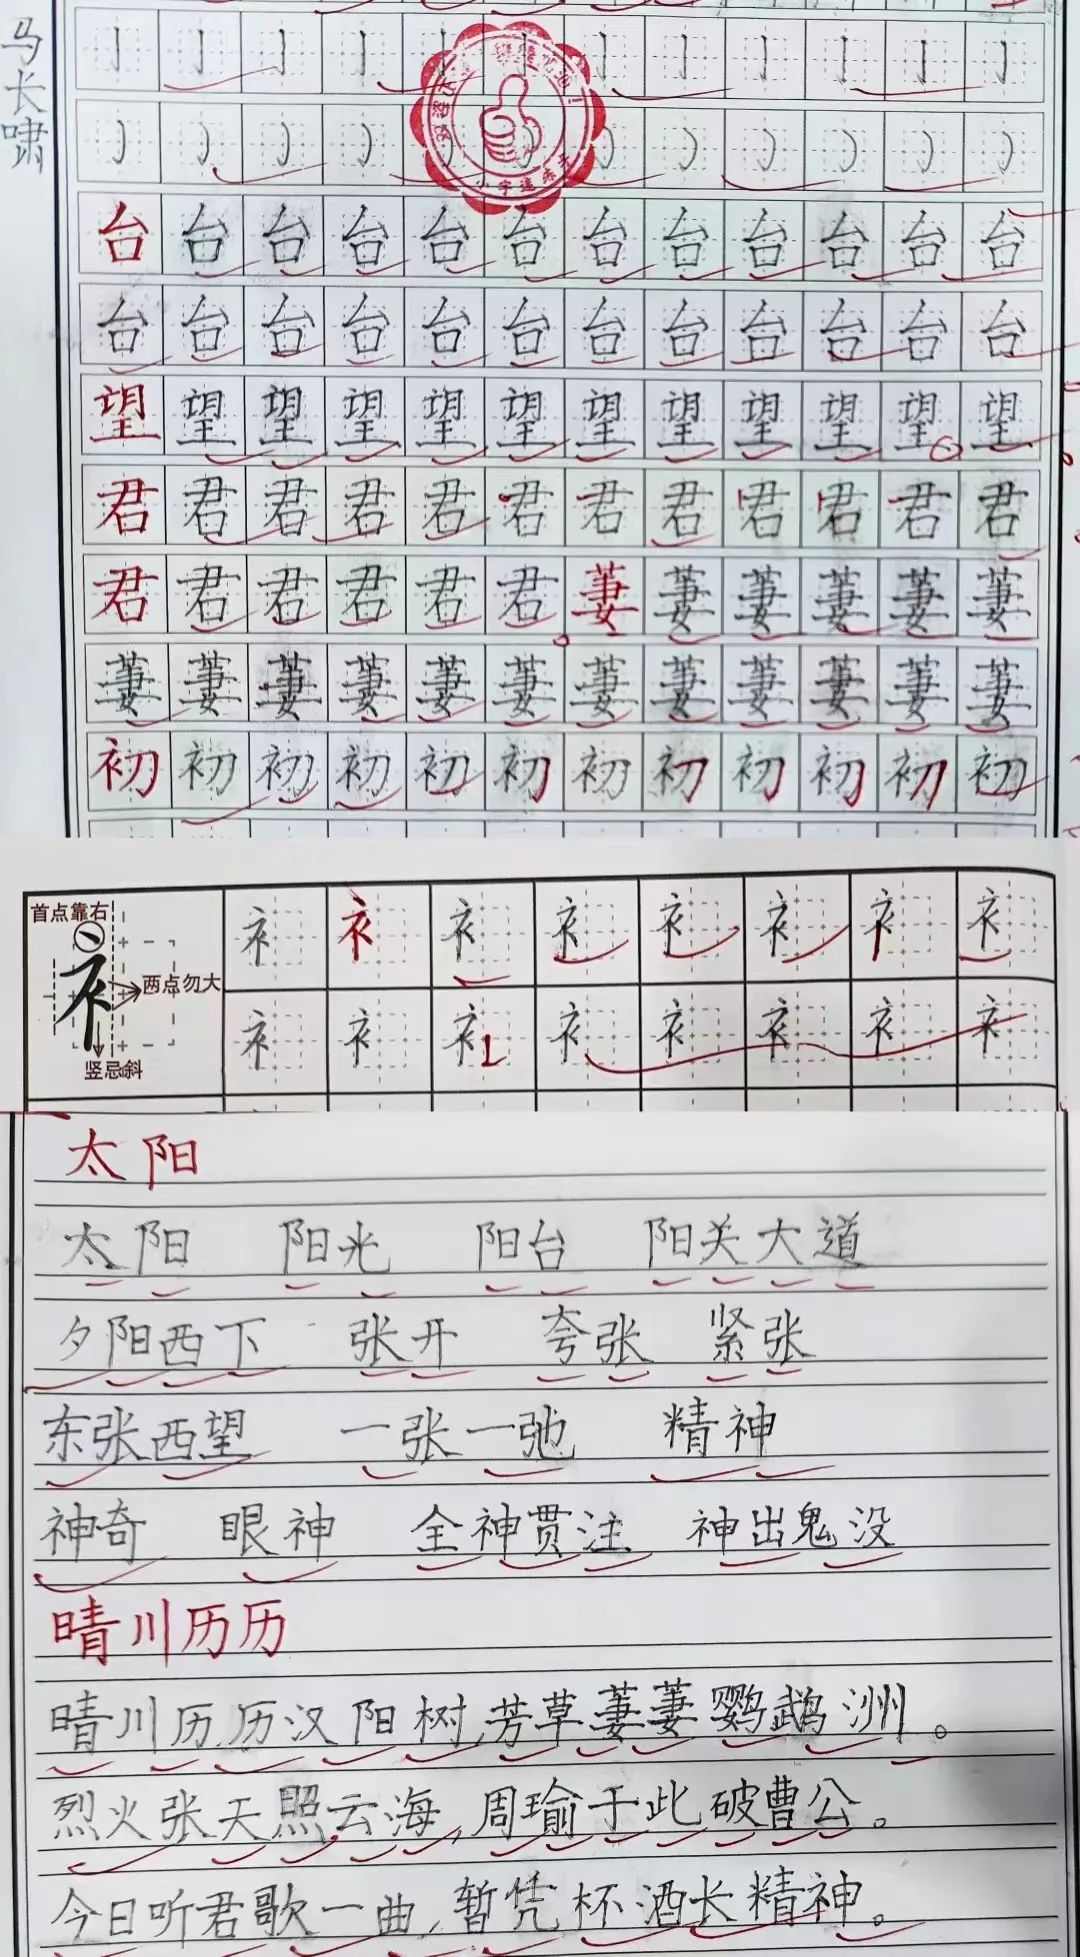 马长啸
台台台台台台台台台台台台
台台台台台台台台台台台台
望望望望望望望望望望望望
君君君君君君君君君君君君
君君君君君君萋萋萋萋萋萋
萋萋萋萋萋萋萋萋萋萋萋萋
初初初初初初初初初初初初
首点靠右
两点勿大
竖忌斜
衤衤衤衤衤衤衤衤
衤衤衤衤衤衤衤衤
太阳
太阳 阳光 阳台 阳关大道
夕阳西下 张开 夸张 紧张
东张西望 一张一弛 精神
神奇 眼神 全神贯注 神出鬼没
晴川历历
晴川历历汉阳树,芳草萋萋鹦鹉洲。
烈火张天照云海,周瑜于此破曹公。
今日听君歌一曲,暂凭杯酒长精神。